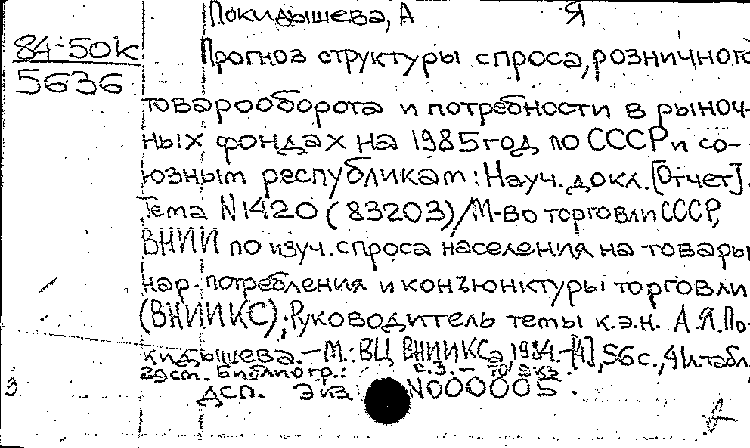 Покидышева, А Я
84-50К
5636
Прогноз структуры спроса, розничного
товарооборота и потребности в рыноч-
ных фондах на 1985 год по СССР и со-
юзным республикам: Науч. докл. [Отчет].
Тема N1420 (83203)/М-во торговли СССР,
ВНИИ по изуч. спроса населения на товары
нар. потребления и конъюнктуры торговли
(ВНИИКС); Руководитель темы к.э.н. А.Я. По-
кидышева. – М.: ВЦ ВНИИКСа, 1984. – [4], 56 с.,
Библиогр.: с.3. –
ДСП. Экз N000005.
3